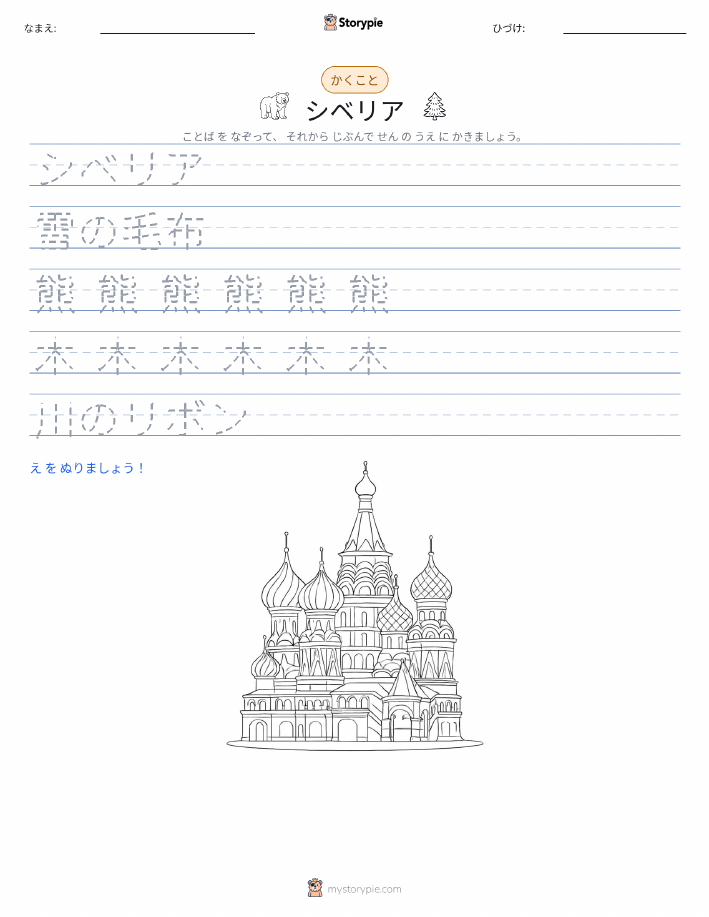 なまえ:
Storypie
ひづけ:
かくこと
シベリア
ことば を なぞって、 それから じぶんで せん の うえ に かきましょう。
シベリア
雪の毛布
熊 熊 熊 熊 熊 熊
木 木 木 木 木 木
川のリボン
え を ぬりましょう！
mystorypie.com